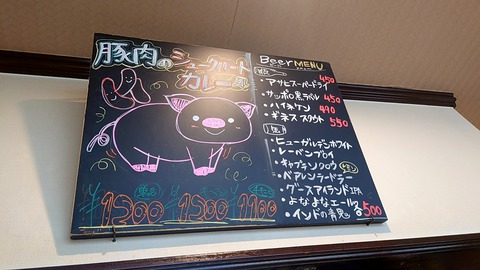 豚肉の
シュークルート
カレー風
単品 セット
¥1200 ¥1500 ¥1100
Beer MENU
・アサヒスーパードライ 450
・サッポロ黒ラベル 450
・ハイネケン 490
・ギネススタウト 550
・ヒューガルデンホワイト
・レーベンブロイ
・キャプテンクロウ
・ベアレンラードラー
・グースアイランドIPA
・よなよなエール
・インドの青鬼 各500